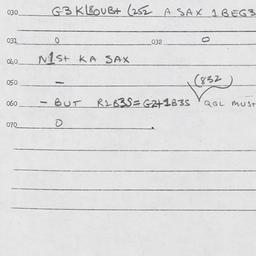 030 G3 K180UB+ (252 A SAX 1BEG3
031 0 032 0
040 N1S+ KA SAX
050 -
(832)
060 - BUT R2B3S=G2+1B3S QGL MUS+
070 0 .